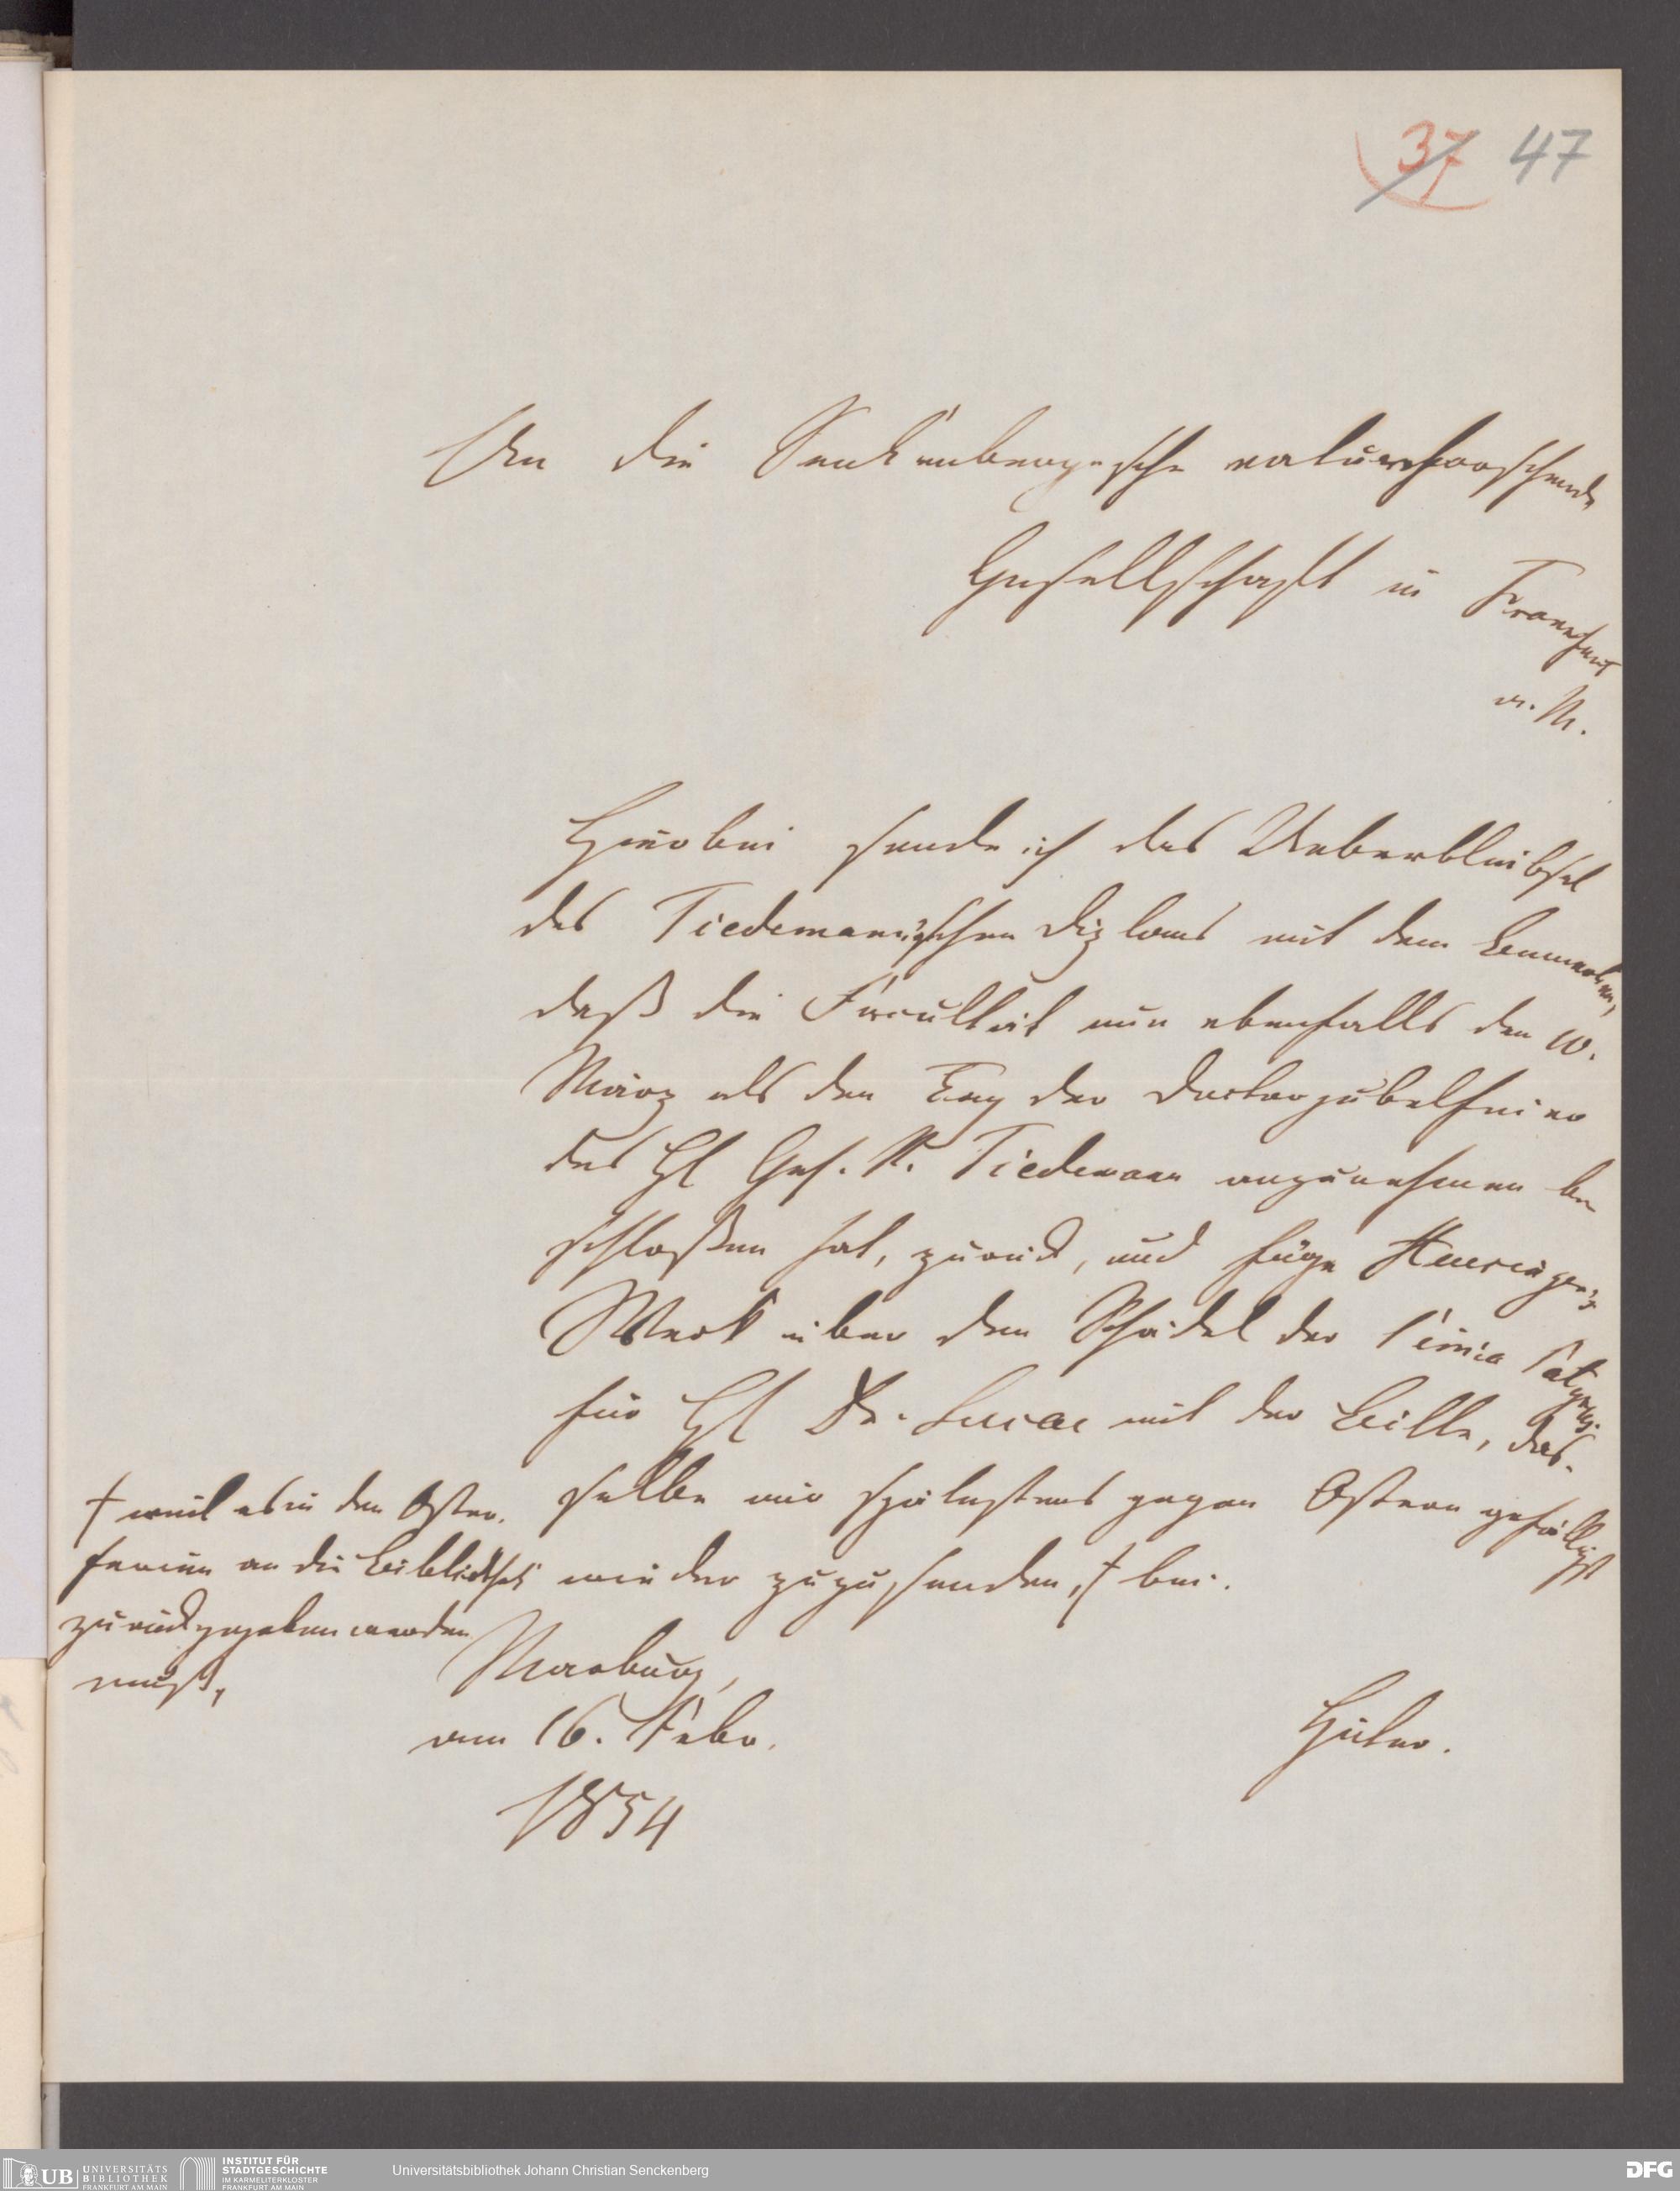 37 47
An die Senkenbergische naturforschende
Gesellschaft in Frankfurt
a. M.
Hierbei sende ich das Ueberbleibsel
des Tiedemann'schen Diploms mit dem Bemerken,
daß die Facultät nun ebenfalls den 10.
März als den Tag der Doctorjubelfeier
des H Geh. R. Tiedemann anzunehmen be
schloßen hat, zurück, und füge Heusinger's
Werk über den Schädel der Simia Satyrus
für H Dr. Lucae mit der Bitte, das-
selbe mir spätestens gegen Ostern gefälligst
wieder zuzusenden, † bei.
† weil es in den Oster-
ferien an die Bibliothek
zurückgegeben werden
muß,
Marburg,
am 16. Febr.
1854
Hüter.
UB UNIVERSITÄTS
BIBLIOTHEK
FRANKFURT AM MAIN
INSTITUT FÜR
STADTGESCHICHTE
IM KARMELITERKLOSTER
FRANKFURT AM MAIN
Universitätsbibliothek Johann Christian Senckenberg
DFG